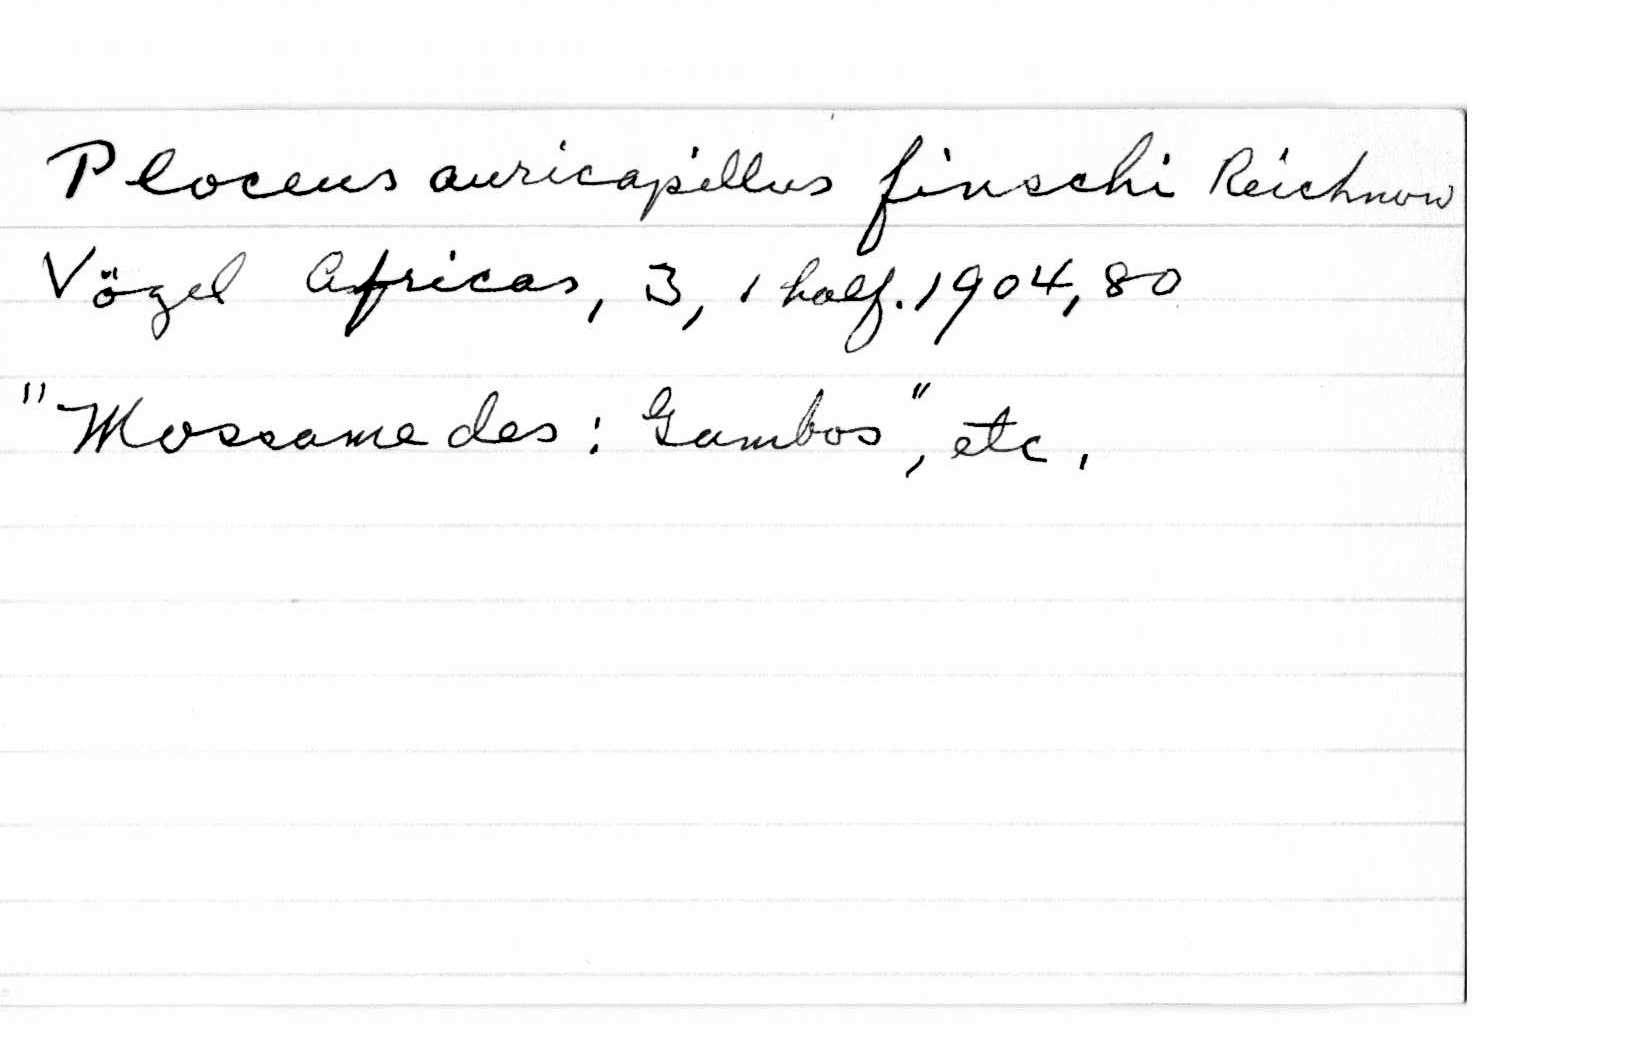 Ploceus auricapillus finschi Reichnow
Vögel Africas, 3, 1 half. 1904, 80
"Mossamedes: Gambos", etc.